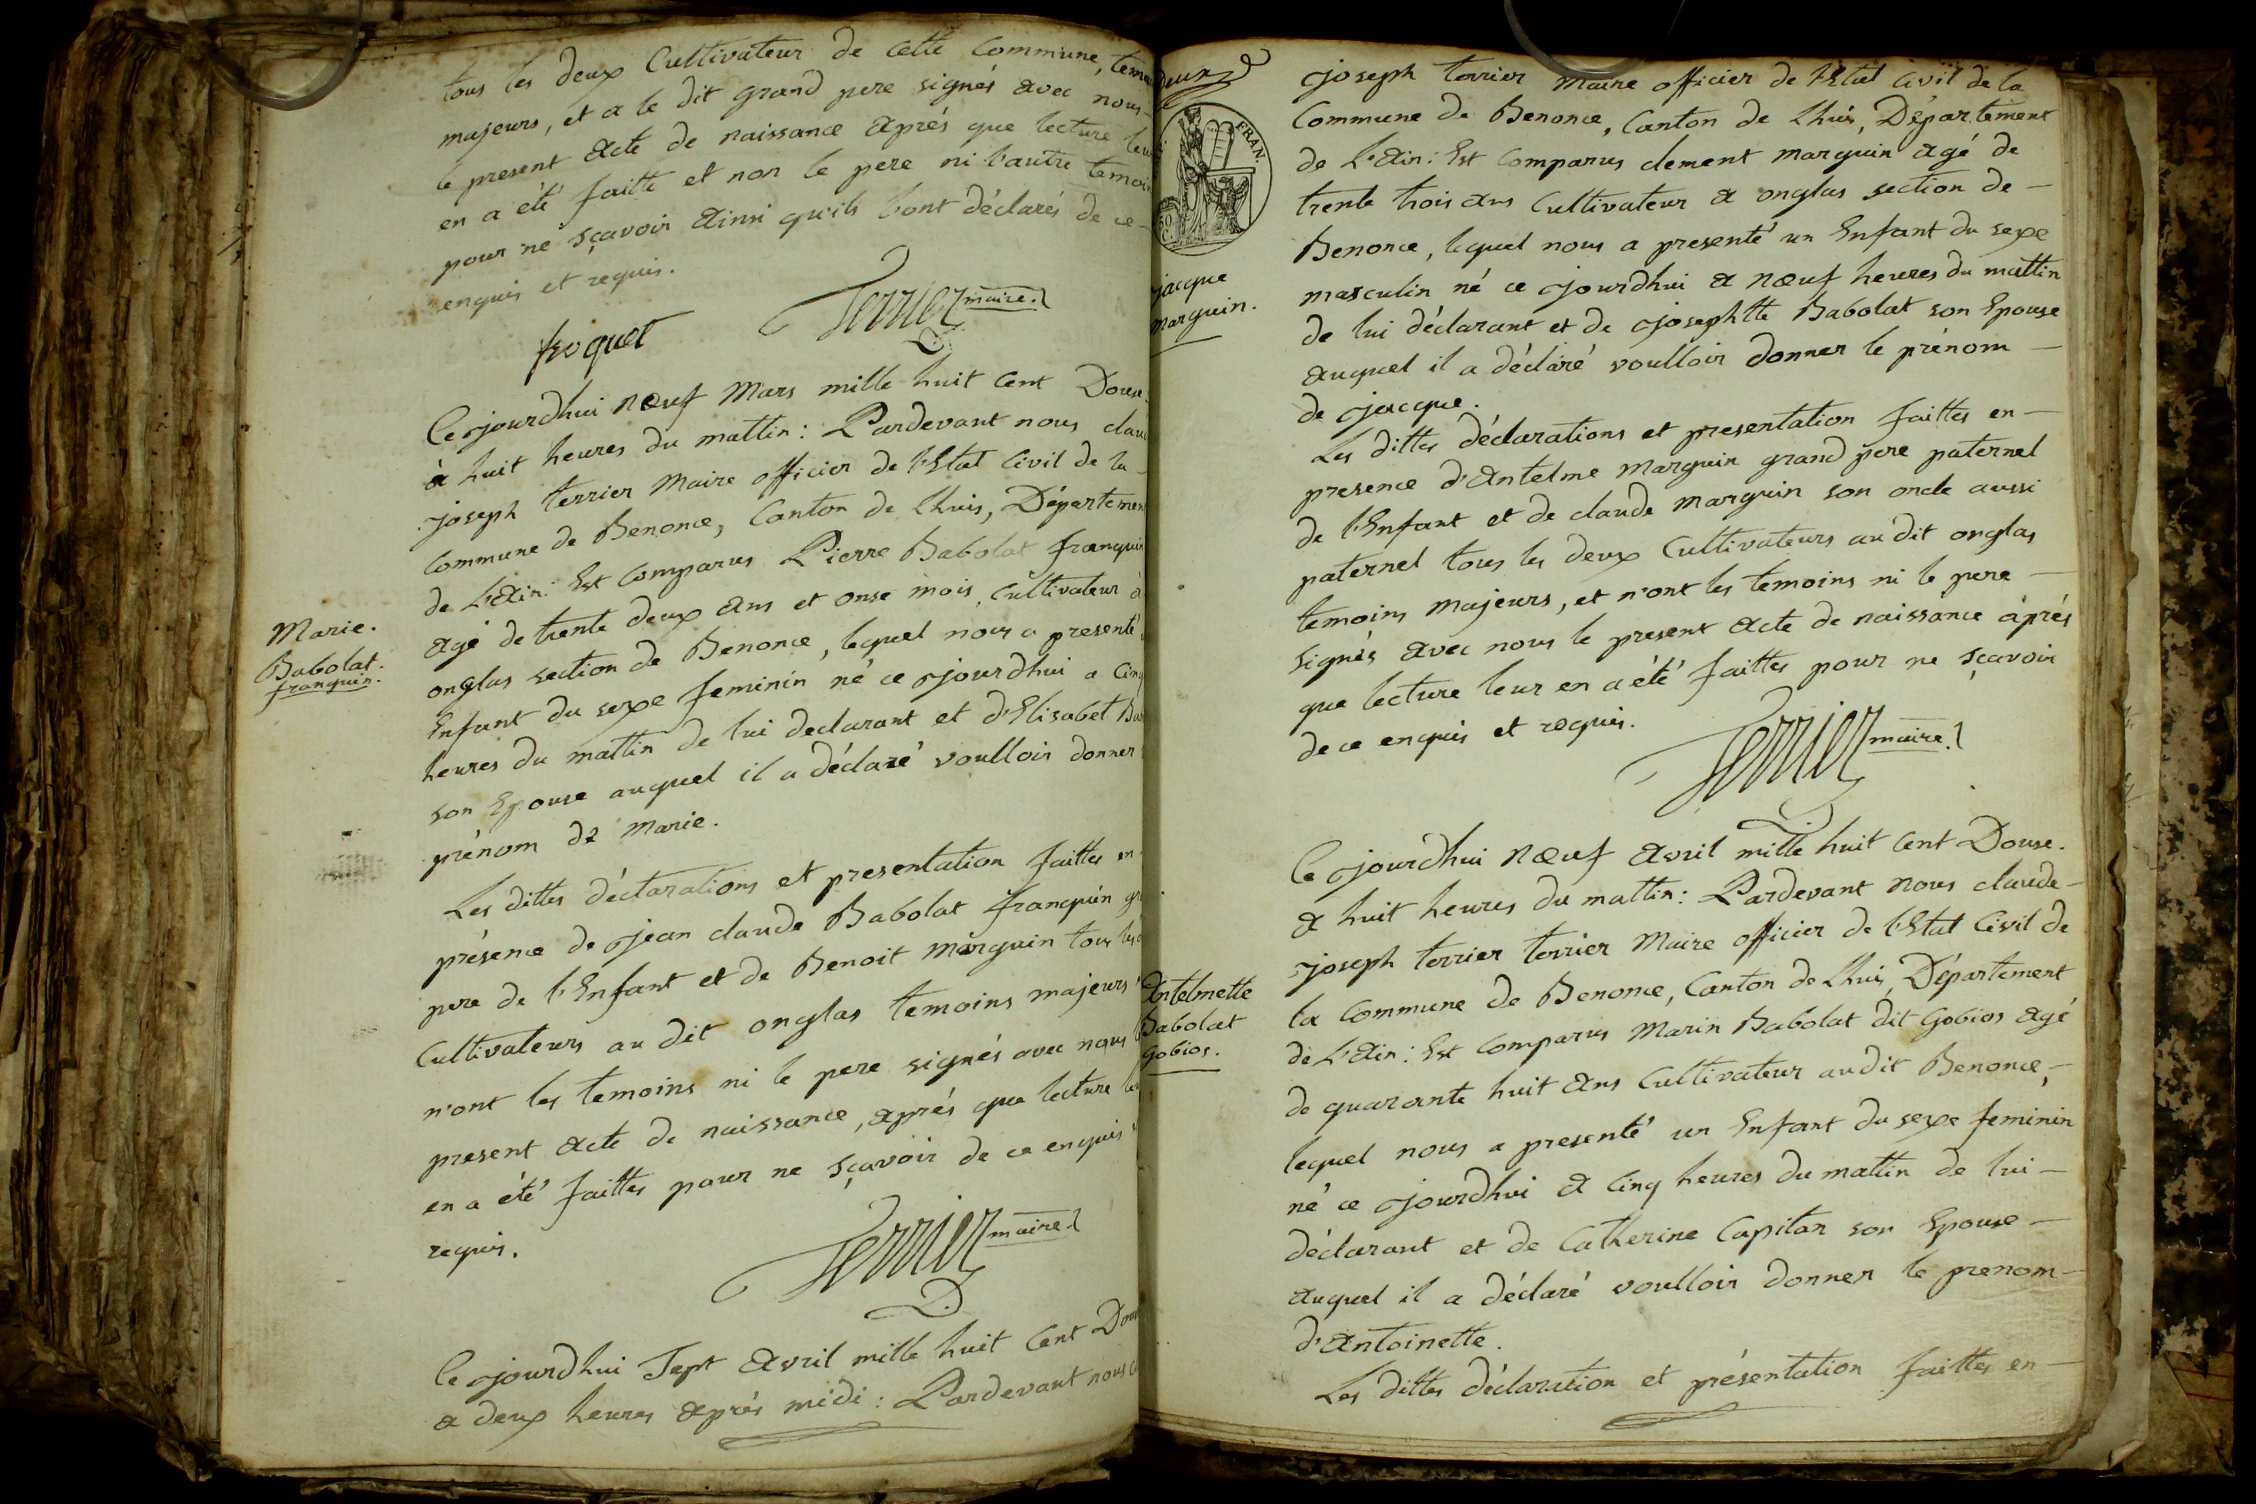 tous les deux Cultivateur de cette Commune,
majeurs, et a le dit grand pere signés avec nous
le present Acte de naissance Aprés que lecture leur
en a été faitte et non le pere ni l'autre temoin
pour ne sçavoir Ainsi qu'ils l'ont déclarés de ce
enquis et requis.
froquet Terrier maire.
Ce ojourdhui nœuf Mars mille huit Cent Douse
à huit heures du mattin: Pardevant nous
joseph terrier Maire officier de l'Etat Civil de la
Commune de Benonce, Canton de Lhuis, Département
de L'Ain: Est Comparus Pierre Babolat franquin
Agé de trente deux Ans et onse mois, Cultivateur à
onglas section de Benonce, lequel nous a presenté
Enfant du sexe feminin né ce ojourdhui a Cinq
heures du mattin de lui declarant et d'Elisabet
son Epouse auquel il a déclaré voulloir donner
prénom de Marie.
Les dittes déclarations et presentation faittes en
présence de ojean claude Babolat franquin
pere de l'Enfant et de Benoit Marguin tous les
Cultivateurs au dit onglas temoins majeurs
n'ont les temoins ni le pere signés avec nous
present Acte de naissance, Aprés que lecture
en a été faittes pour ne sçavoir de ce enquis
requis.
Terrier maire.
Ce ojourdhui Sept Avril mille huit Cent
a deux heures Aprés midi: Pardevant nous
Marie.
Babolat.
franquin.
FRAN.
jacque
Marguin.
ojoseph terrier Maire officier de l'Etat Civil de la
Commune de Benonce, Canton de Lhuis, Département
de L'Ain: Est Comparus clement marguin Agé de
trente trois Ans Cultivateur a onglas section de —
Benonce, lequel nous a presenté un Enfant du sexe
masculin né ce ojourdhui a nœuf heures du mattin
de lui déclarant et de ojosephtte Babolat son Epouse
Auquel il a déclaré voulloir donner le prénom —
de ojacque.
Les dittes déclarations et presentation faittes en —
presence d'Antelme Marguin grand pere paternel
de l'Enfant et de claude Marguin son oncle aussi
paternel tous les deux Cultivateurs au dit onglas
temoins majeurs, et n'ont les temoins ni le pere —
signés avec nous le present Acte de naissance àprés
que lecture leur en a été faittes pour ne sçavoir
de ce enquis et requis.
Terrier maire.
Ce ojourdhui nœuf Avril mille huit Cent Douse.
a huit heures du mattin: Pardevant nous claude —
ojoseph terrier terrier Maire officier de l'Etat Civil de
la Commune de Benonce, Canton de Lhuis, Département
de L'Ain: Est Comparus Marin Babolat dit Gobios Agé
de quarante huit Ans Cultivateur audit Benonce, —
lequel nous a presenté un Enfant du sexe feminin
né ce ojourdhui a Cinq heures du mattin de lui —
déclarant et de Catherine Capitan son Epouse —
Auquel il a déclaré voulloir donner le prenom —
d'Antoinette.
Les dittes déclaration et présentation faittes en —
Antelmette
Babolat
Gobios.